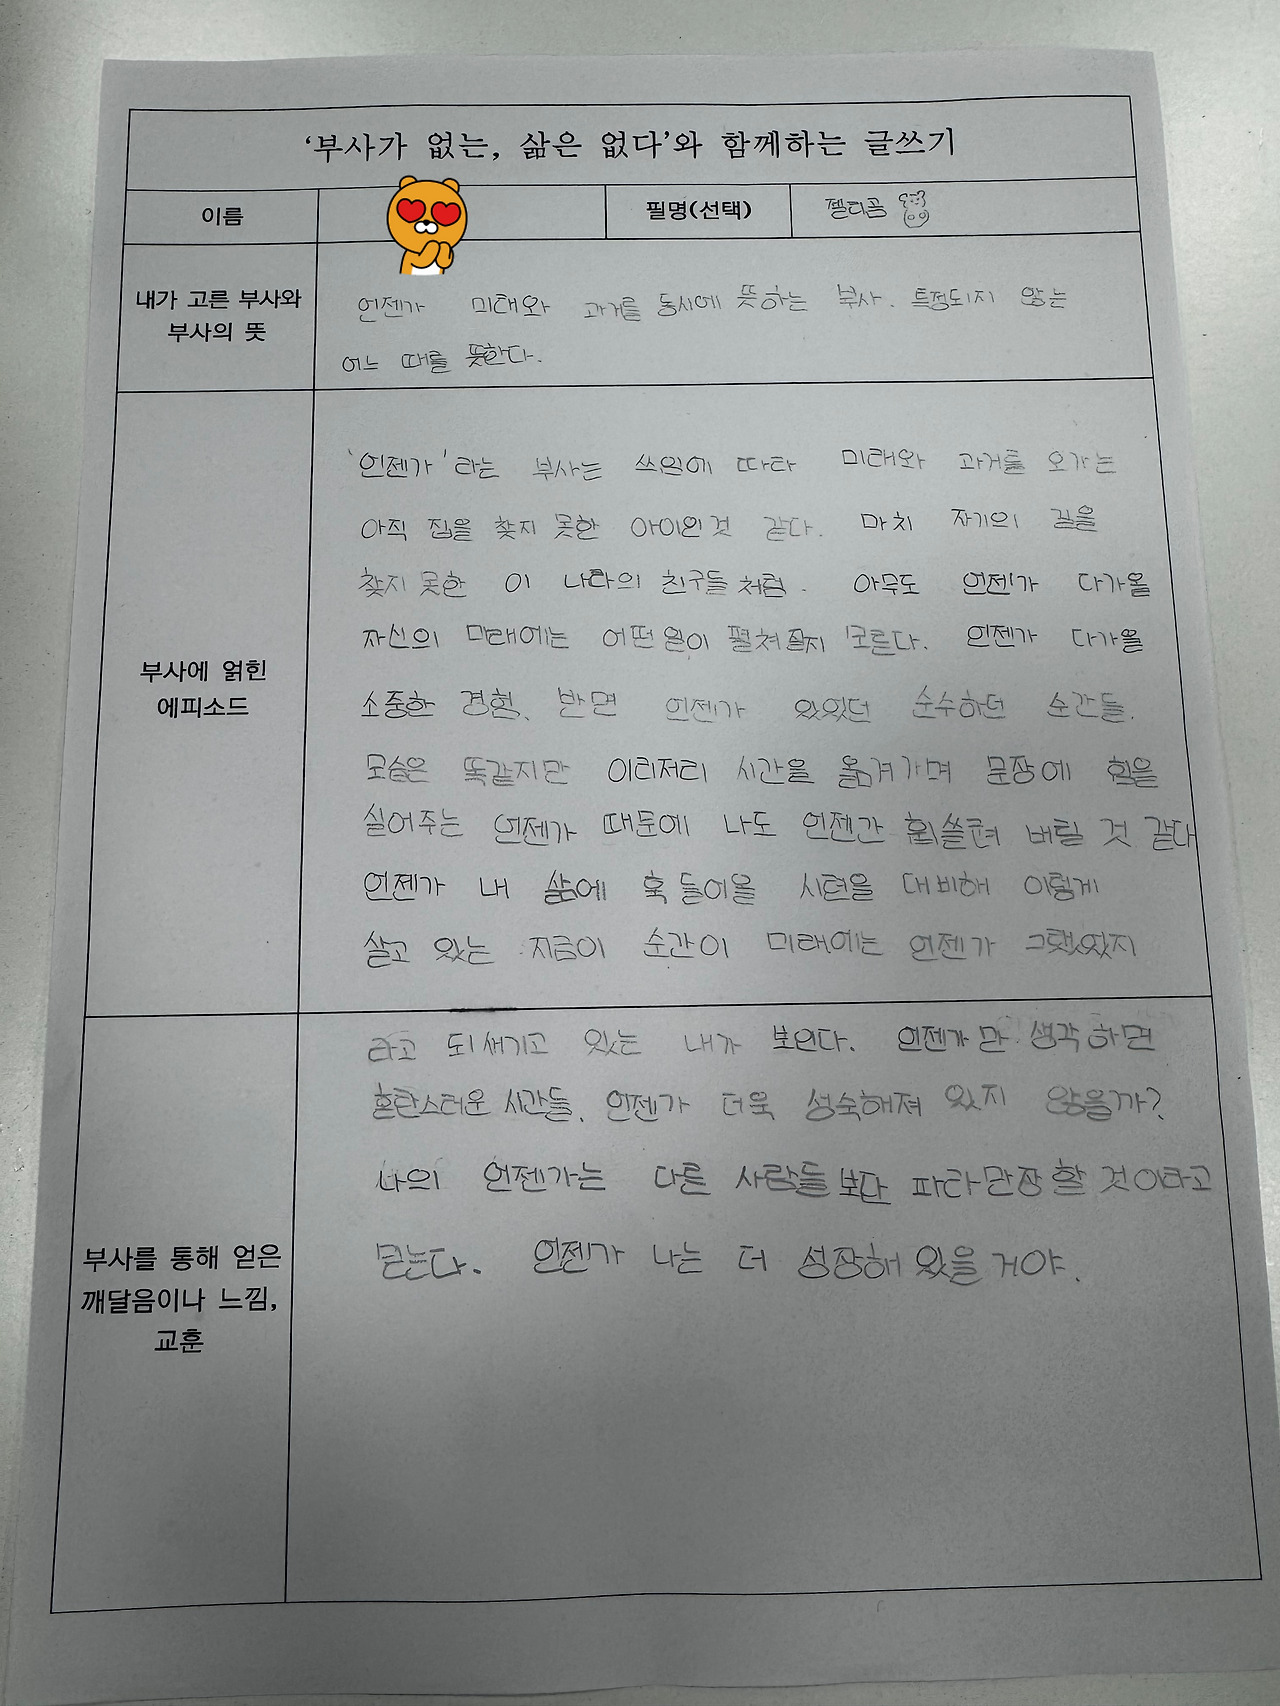 ‘부사가 없는, 삶은 없다’와 함께하는 글쓰기
이름
필명(선택)
젤리곰
내가 고른 부사와
부사의 뜻
언젠가 미래와 과거를 동시에 뜻하는 부사. 특정되지 않는
어느 때를 뜻한다.
부사에 얽힌
에피소드
‘언젠가’라는 부사는 쓰임에 따라 미래와 과거를 오가는
아직 집을 찾지 못한 아이인것 같다. 마치 자기의 길을
찾지 못한 이 나라의 친구들처럼. 아무도 언젠가 다가올
자신의 미래에는 어떤 일이 펼쳐질지 모른다. 언젠가 다가올
소중한 경험, 반면 언젠가 있었던 순수하던 순간들.
모습은 똑같지만 이리저리 시간을 옮겨가며 문장에 힘을
실어주는 언젠가 때문에 나도 언젠간 휩쓸려 버릴 것 같다
언젠가 내 삶에 훅 들어올 시련을 대비해 이렇게
살고 있는 지금이 순간이 미래에는 언젠가 그랬었지
라고 되새기고 있는 내가 보인다. 언젠가만 생각하면
혼란스러운 시간들, 언젠가 더욱 성숙해져 있지 않을까?
나의 언젠가는 다른 사람들보다 파라만장할 것이라고
믿는다. 언젠가 나는 더 성장해 있을거야.
부사를 통해 얻은
깨달음이나 느낌,
교훈